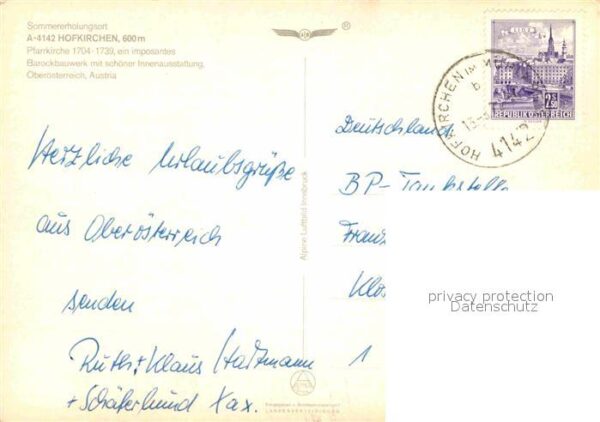 Sommererholungsort
A-4142 HOFKIRCHEN, 600 m
Pfarrkirche 1704-1739, ein imposantes
Barockbauwerk mit schöner Innenausstattung,
Oberösterreich, Austria
®
LINZ
2.50
REPUBLIK ÖSTERREICH
HOFKIRCHEN IM
4142
Deutschland
BP-Tankstelle
Franz
Klos
1
Herzliche Urlaubsgrüße
aus Oberösterreich
senden
Ruth + Klaus Hartmann
+ Schäferhund Xax.
Alpine Luftbild Innsbruck
privacy protection
Datenschutz